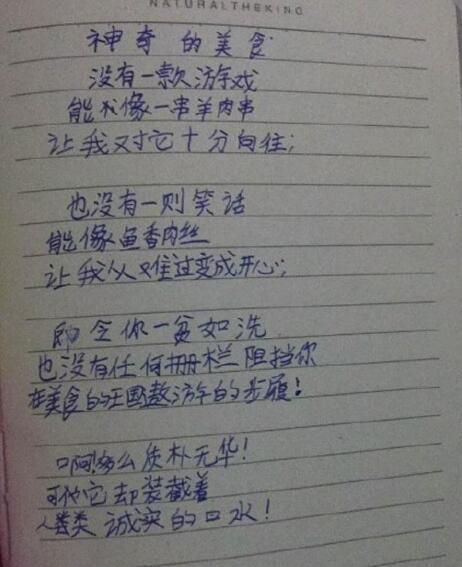 NATURALTHEKING
神奇的美食
没有一款游戏
能像一串羊肉串
让我对它十分向往;
也没有一则笑话
能像鱼香肉丝
让我从难过变成开心;
即令你一贫如洗
也没有任何栅栏阻挡你
在美食的王国遨游的步履!
啊多么质朴无华!
可它却装载着
人类诚实的口水!